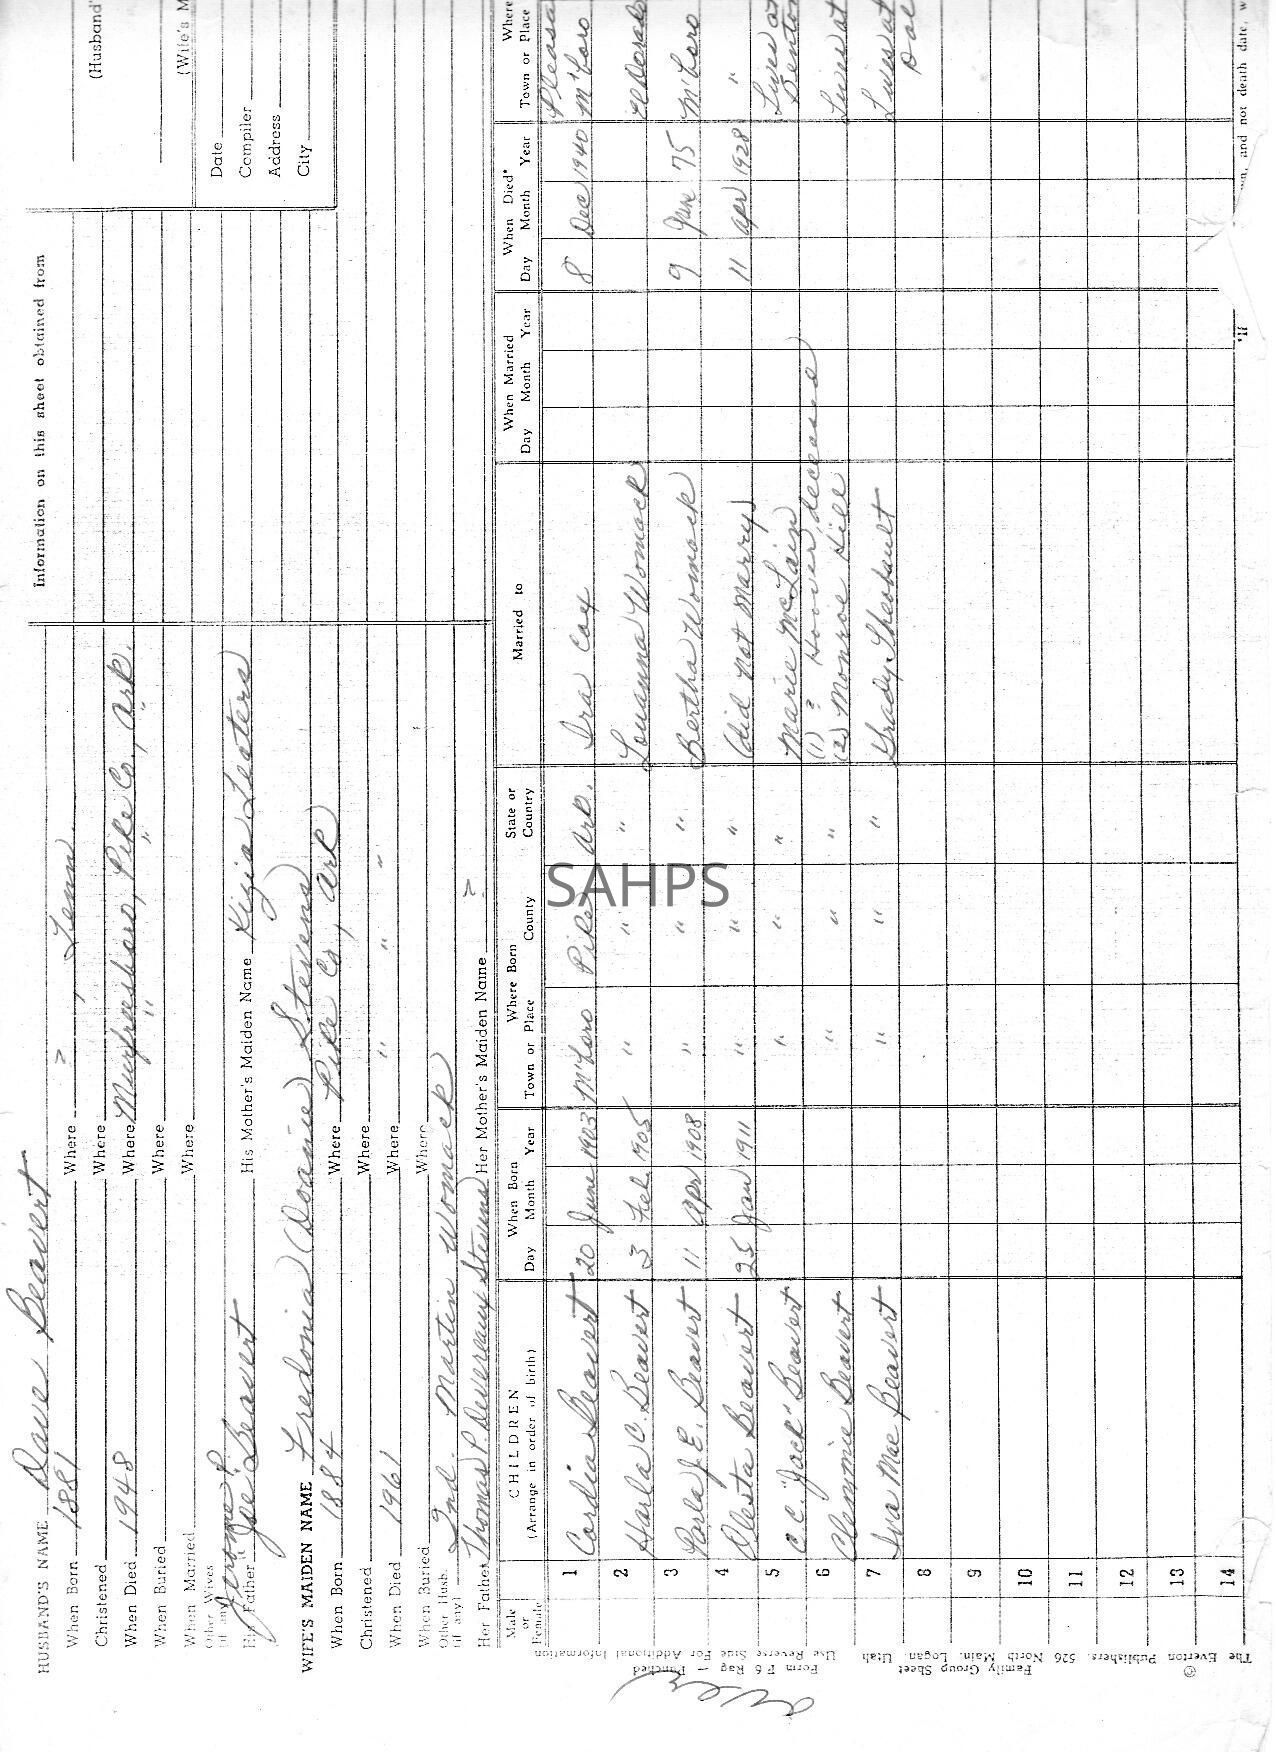 HUSBAND'S NAME Dave Beavert
When Born 1881 Where ? , Tenn.
Christened Where
When Died 1948 Where Murfreesboro, Pike Co., Ark.
When Buried Where " " "
When Married Where
Other Wives (if any)
His Father Jerome P. "Joe" Beavert His Mother's Maiden Name Kizia Teeters
WIFE'S MAIDEN NAME Fredonia (Doanie) Stevens
When Born 1884 Where Pike Co., Ark
Christened Where
When Died 1961 Where " " "
When Buried Where
Other Husb. (if any) 2nd. Martin Womack
Her Father Thomas P. Devereaux Stevens Her Mother's Maiden Name ?
Information on this sheet obtained from
(Husband'
(Wife's M
Date
Compiler
Address
City
Male or Female
CHILDREN (Arrange in order of birth)
When Born Day Month Year
Where Born Town or Place County State or Country
Married to
When Married Day Month Year
When Died* Day Month Year
Where Town or Place
1 Cordia Beavert 20 June 1903 M'boro Pike Ark. Ira Cox 8 Dec 1940 M'boro
2 Harla C. Beavert 3 Feb. 1905 " " " Louanna Womack
3 Parla J. E. Beavert 11 Apr 1908 " " " Bertha Womack 9 June 75 M'boro
4 Olesta Beavert 25 Jan 1911 " " " (did not marry) 11 Apr 1928 "
5 C. C. "Jack" Beavert " " " Marie McLain Lives at Benton
6 Clemmie Beavert " " " (1) ? Hoover, deceased (2) Monroe Hill Lives at
7 Iva Mae Beavert " " " Grady Theobault Lives at
8
9
10
11
12
13
14
and not death date, w
Form F 6 Rag — Punched
Use Reverse Side For Additional Information
Family Group Sheet
© The Everton Publishers, 526 North Main, Logan, Utah
over
SAHPS